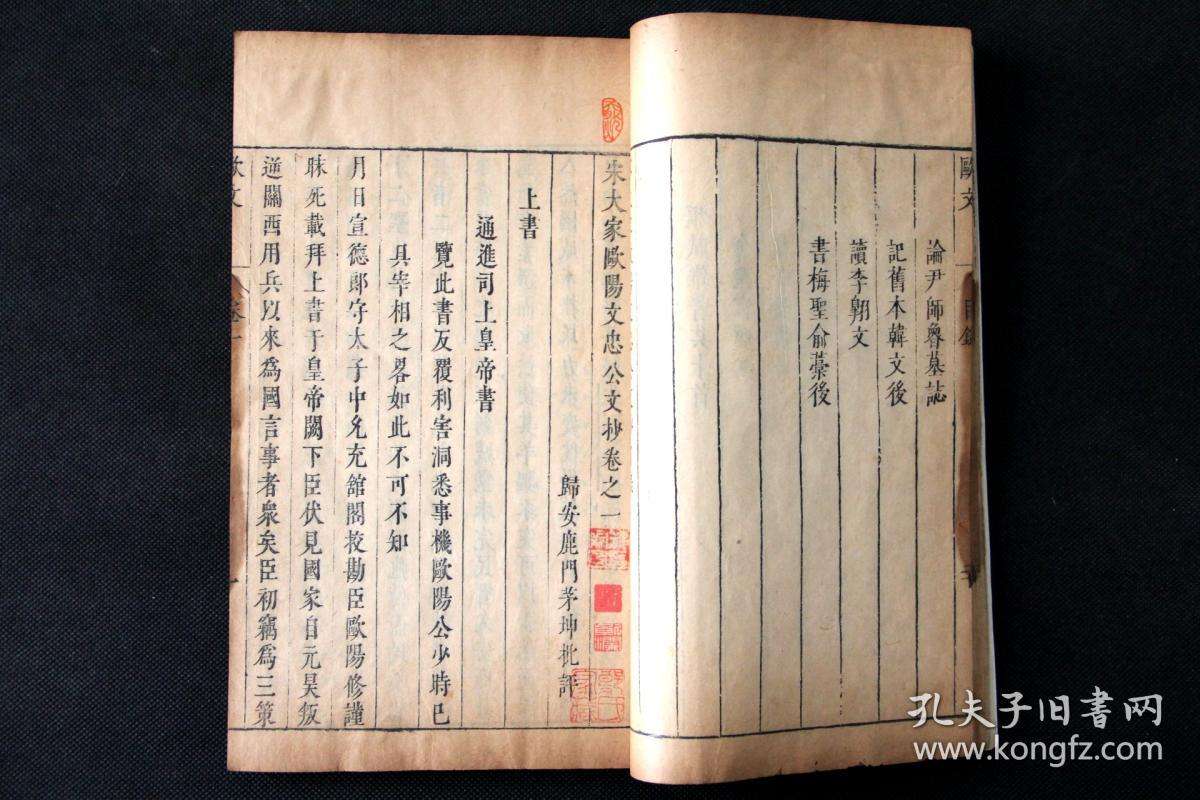 歐文
論尹師魯墓誌
記舊本韓文後
讀李翺文
書梅聖俞藁後
宋大家歐陽文忠公文抄卷之一
歸安鹿門茅坤批評
上書
通進司上皇帝書
覽此書反覆利害洞悉事機歐陽公少時已
具宰相之畧如此不可不知
月日宣德郎守太子中允充舘閣校勘臣歐陽修謹
昧死載拜上書于皇帝闕下臣伏見國家自元昊叛
逆關西用兵以來爲國言事者衆矣臣初竊爲三策
歐文
孔夫子旧书网
www.kongfz.com